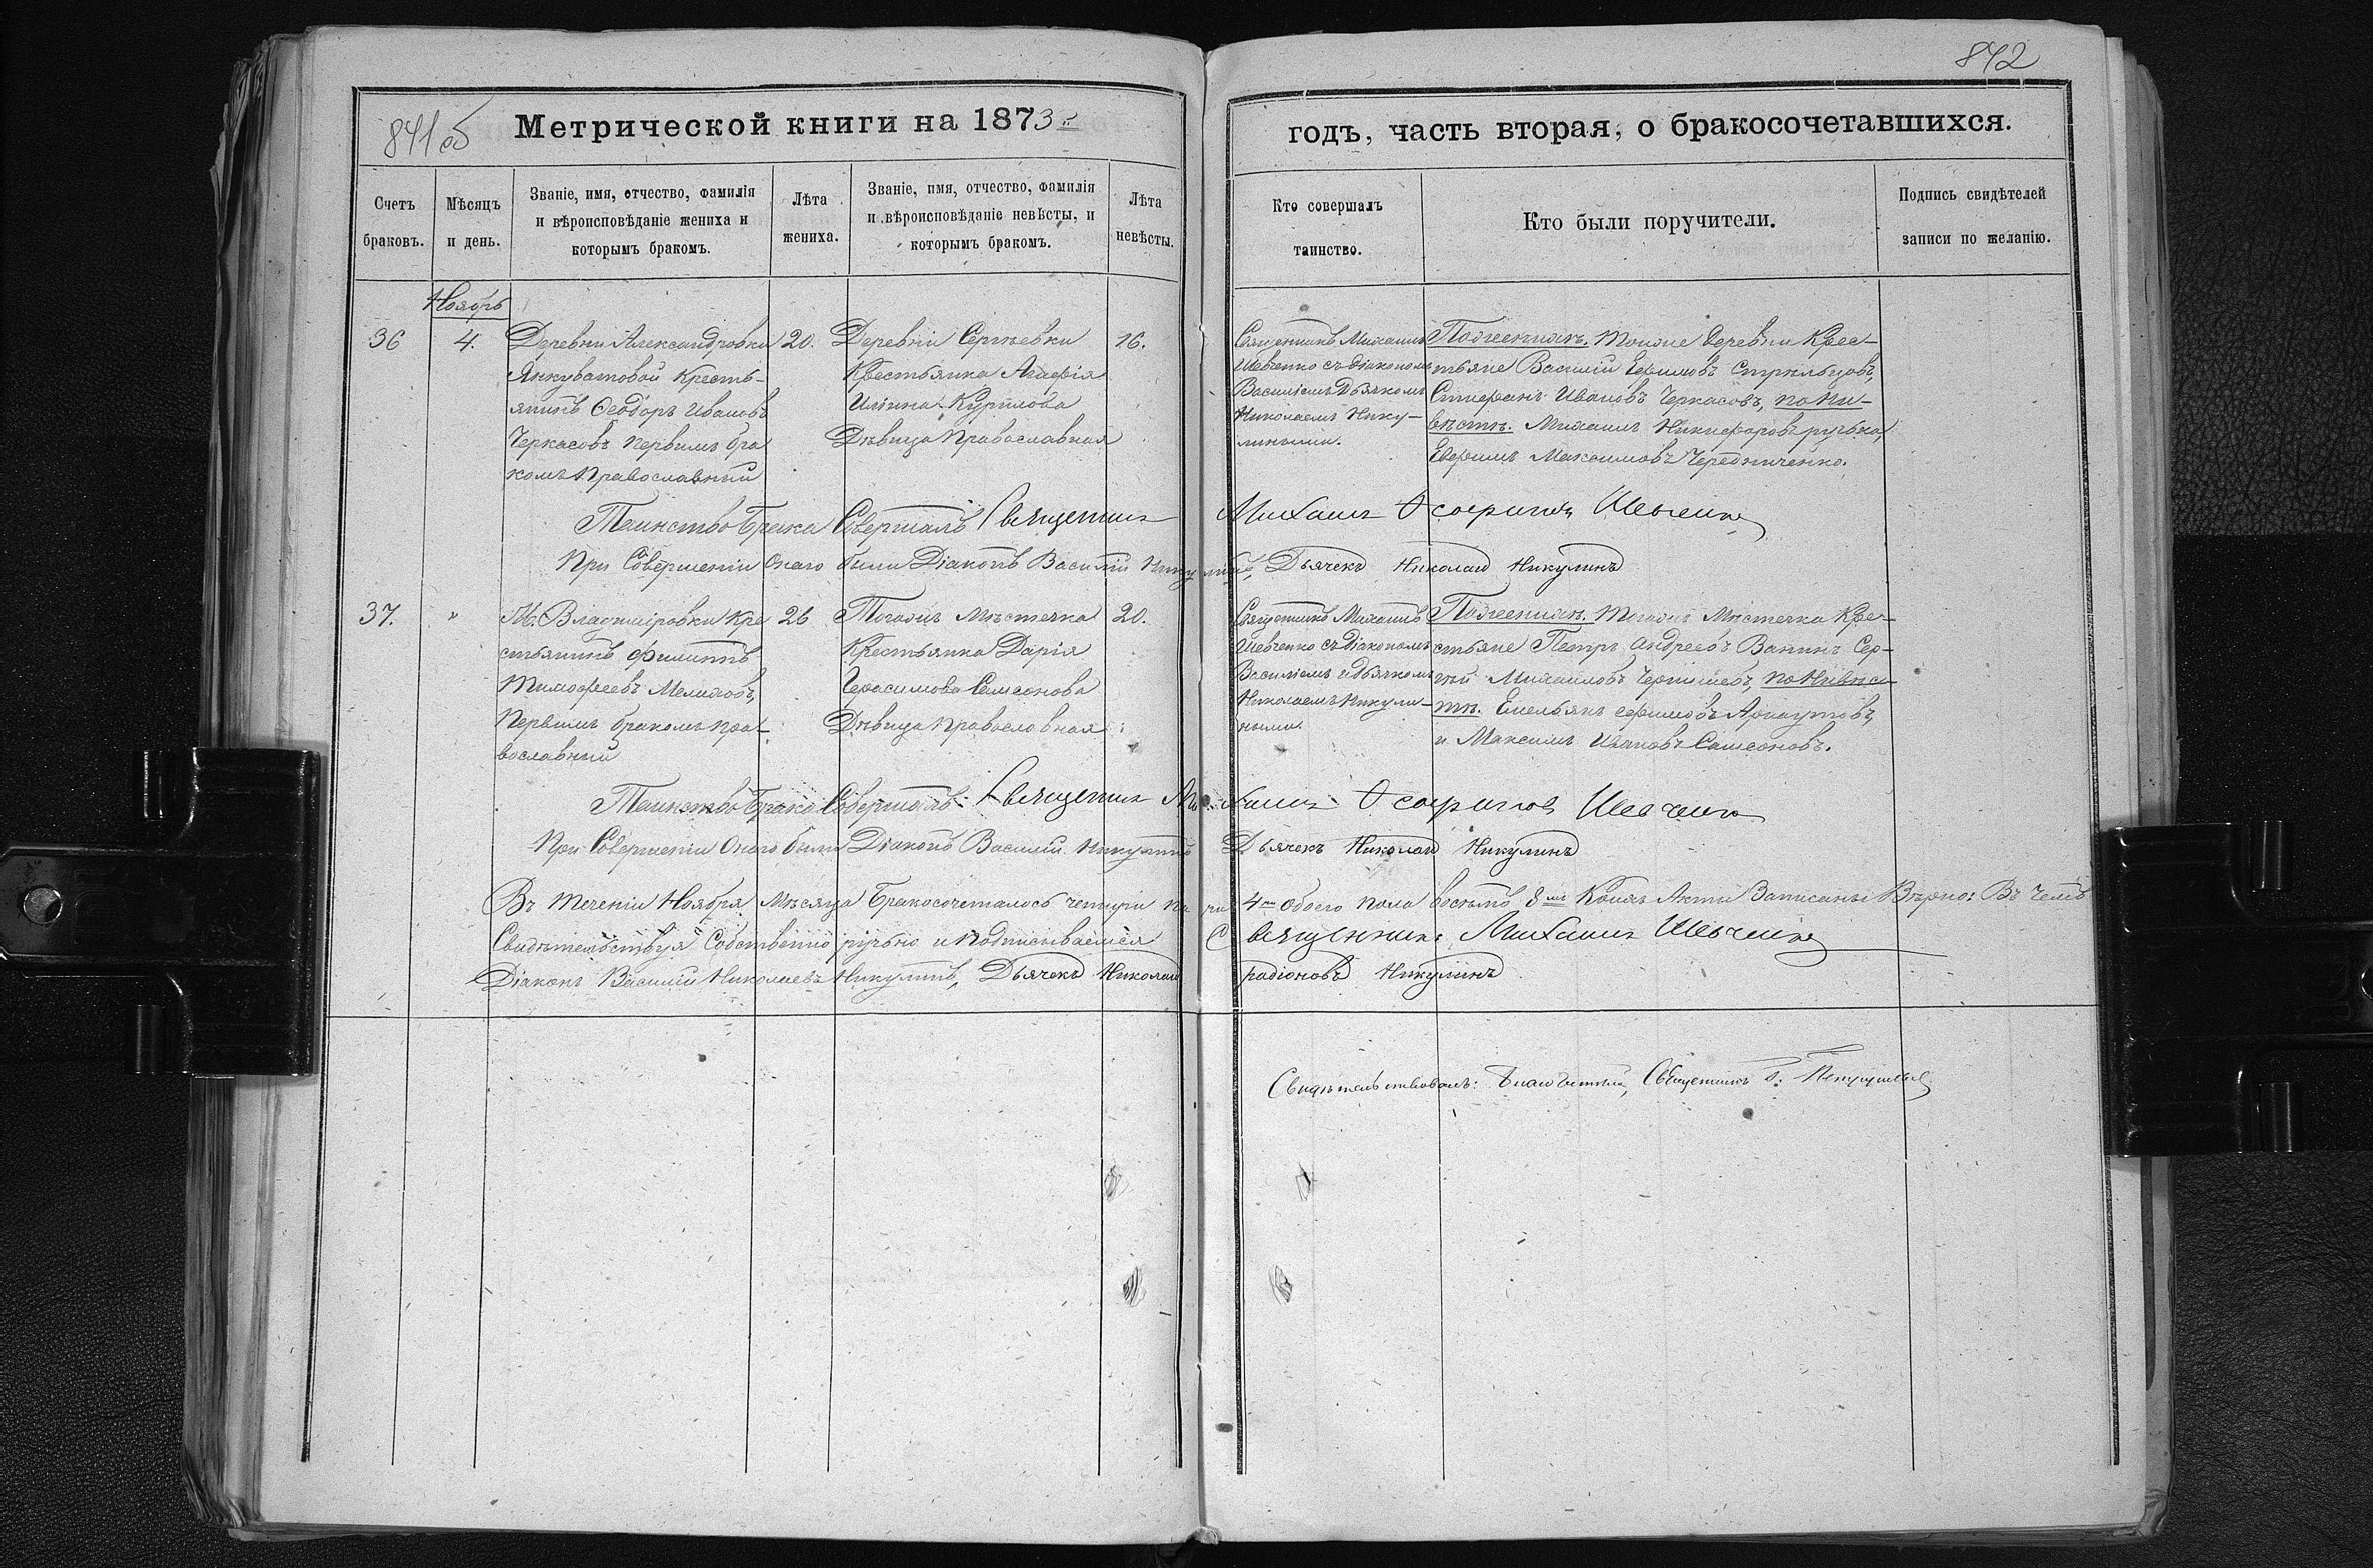 842
841об
Метрической книги на 1873й
годъ, часть вторая, о бракосочетавшихся.
Счетъ
браковъ.
Мѣсяцъ
и день.
Званіе, имя, отчество, фамилія
и вѣроисповѣданіе жениха и
которымъ бракомъ.
Лѣта
жениха.
Званіе, имя, отчество, фамилія
и вѣроисповѣданіе невѣсты, и
которымъ бракомъ.
Лѣта
невѣсты.
Кто совершалъ
таинство.
Кто были поручители.
Подпись свидѣтелей
записи по желанію.
Ноябрь
36
4.
Деревни Александровки
Янкуватовой Кресть-
янинъ Ѳеодоръ Ивановъ
Черкасовъ первымъ бра
комъ Православный
20.
Деревни Сергѣевки
Крестьянка Агафія
Ильина Курилова
Дѣвица Православная
16.
Священникъ Михаилъ
Шевченко съ Діакономъ
Василіемъ Дьячкомъ
Николаемъ Нику-
лиными.
По женихѣ. Тойже деревни Крес-
тьяне Василій Ефимовъ Стрѣльцовъ,
Стефанъ Ивановъ Черкасовъ, по Ни-
вѣстѣ. Михаилъ Никифоровъ ручка,
Евфимъ Максимовъ Чередниченко.
Таинство Брака Совершалъ Священникъ Михаилъ Шевченко
При Совершеніи Онаго были Діаконъ Василій Никулинъ, Дьячекъ Николай Никулинъ
37.
"
М. Владимировки Кре
стьянинъ Филиппъ
Тимофеевъ Мелиховъ,
Первымъ бракомъ пра-
вославный
26
Тогожъ Мѣстечка
Крестьянка Дарія
Герасимова Самсонова
Дѣвица православная
20.
Священникъ Михаилъ
Шевченко съ Діакономъ
Василіемъ и дьячкомъ
Николаемъ Никули-
ными.
По женихѣ. Тогожъ Мѣстечка Кре-
стьяне Петръ Андреевъ Ванинъ Сер-
гѣй Михайловъ Чернышевъ, по Нивѣс-
тѣ. Емельянъ Ефимовъ Арнаутовъ,
и Максимъ Ивановъ Самсоновъ.
Таинство Брака Совершалъ: Священникъ Михаилъ Шевченко
При Совершеніи Онаго были Діаконъ Василій Никулинъ Дьячекъ Николай Никулинъ
Въ теченіи Ноября Мѣсяца Бракосочеталось четыри пары 4 обоего пола восемъ 8 Коихъ Акты Записаны Вѣрно: Въ Чемъ
Свидѣтельствуя Собственно ручьно и Подписываемся Священникъ Михаилъ Шевченко
Діаконъ Василій Николаевъ Никулинъ, Дьячекъ Николай радіоновъ Никулинъ
Свидѣтельствовалъ: Благочинный, Священникъ